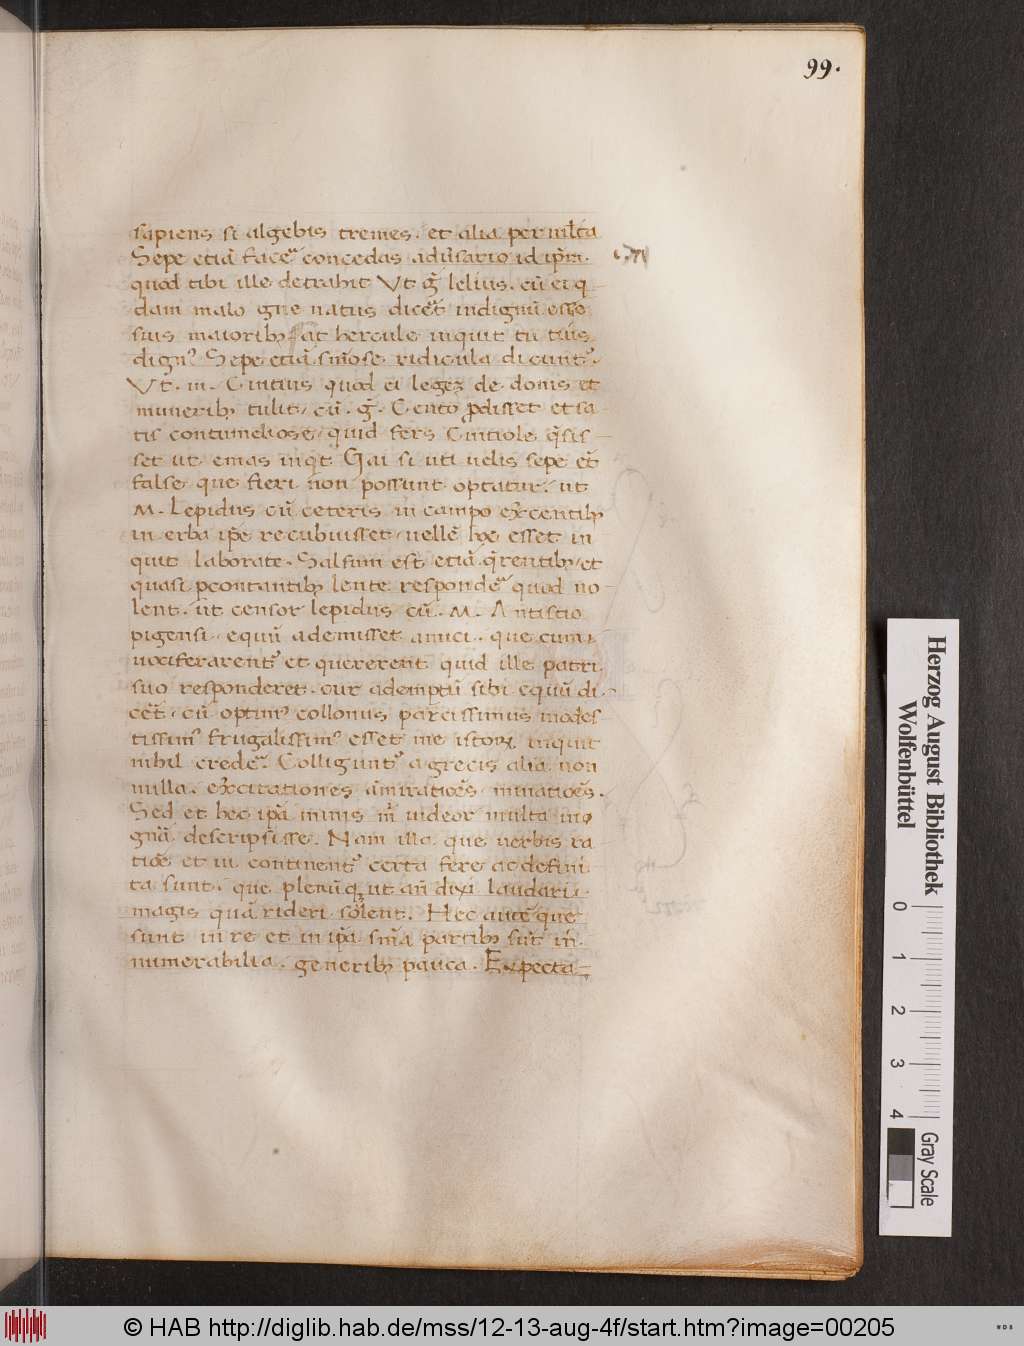 99.
sapiens si algebis tremes. et alia permlta
Sepe etiā facēꝰ concedas adūsario id ip̄m.
quod tibi ille detrahit Vt ḡ lelius. cū ei q
dam malo gñe natus dicēt indignū esse
suis maioribꝫ at hercule inquit tu tuis
dignꝰ. Sepe etiā sn̄iose ridicula dicuntꝰ.
Vt. m. Cintius quod ei legeꝫ de donis et
muneribꝫ tulit. cū. ḡ. Cento ꝓdisset et sa
tis contumeliose. quid fers Cintiole q̄sis
set ut emas inqt Gai si uti uelis sepe et̄
false que fieri non possunt optatur. ut
M. Lepidus cū ceteris in campo ex̄centibꝫ
in erba ip̄e recubuisset. uelle hoc esset in
quit laborare. Salsum est etiā q̄rentibꝫ et
quasi pcontantibꝫ lente respondeꝰ quod no
lent. ut censor lepidus cū. M. Antistio
pigensi. equū ademisset amici. que cum
uociferarentꝰ et quererent quid ille patri
suo responderet. cur ademptū sibi equū di
cēt. cū optimꝰ collonus parcissimus modes
tissimꝰ frugalissimꝰ esset me istoꝝ inquit
nihil credeꝰ. Colligūntꝰ a grecis alia non
nulla. ex̄citationes āmiratiōes minatiōes.
Sed et hec ip̄a nimis m̄ uideor multa in
gn̄a descripsisse. Nam illa que uerbis ra
tiōe et ui continentꝰ certa fere ac defini
ta sunt. que plerūqꝫ ut añ dixi laudari
magis quā rideri solent. Hec autē que
sunt in re et in ip̄a sn̄ia partibꝫ sūt in
numerabilia. generibꝫ pauca. Expecta
Herzog August Bibliothek
Wolfenbüttel
0 1 2 3 4
Gray Scale
© HAB http://diglib.hab.de/mss/12-13-aug-4f/start.htm?image=00205